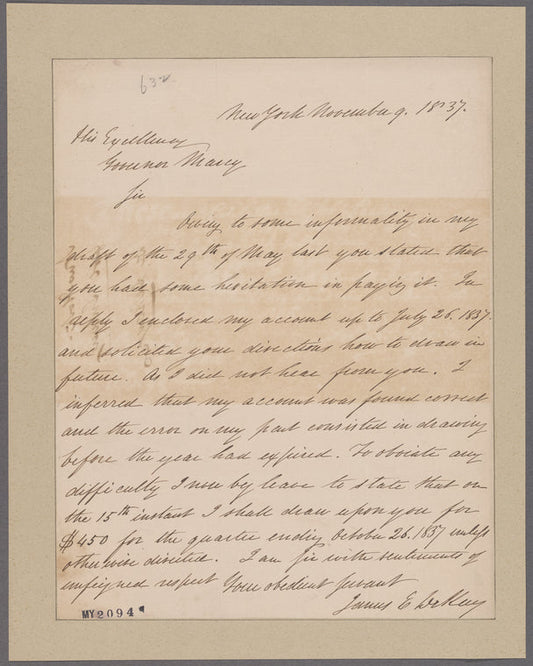 632
New York November 9. 1837.
His Excellency
Governor Marcy
Sir
Owing to some informality in my
draft of the 29th of May last you stated that
you had some hesitation in paying it. In
reply I enclosed my account up to July 26. 1837.
and solicited your directions how to draw in
future. As I did not hear from you. I
inferred that my account was found correct
and the error on my part consisted in drawing
before the year had expired. To obviate any
difficulty I now by leave to state that on
the 15th instant I shall draw upon you for
$450 for the quarter ending October 26. 1837 unless
otherwise directed. I am Sir with sentiments of
unfeigned respect Your obedient Servant
James E DeKay
MY2094